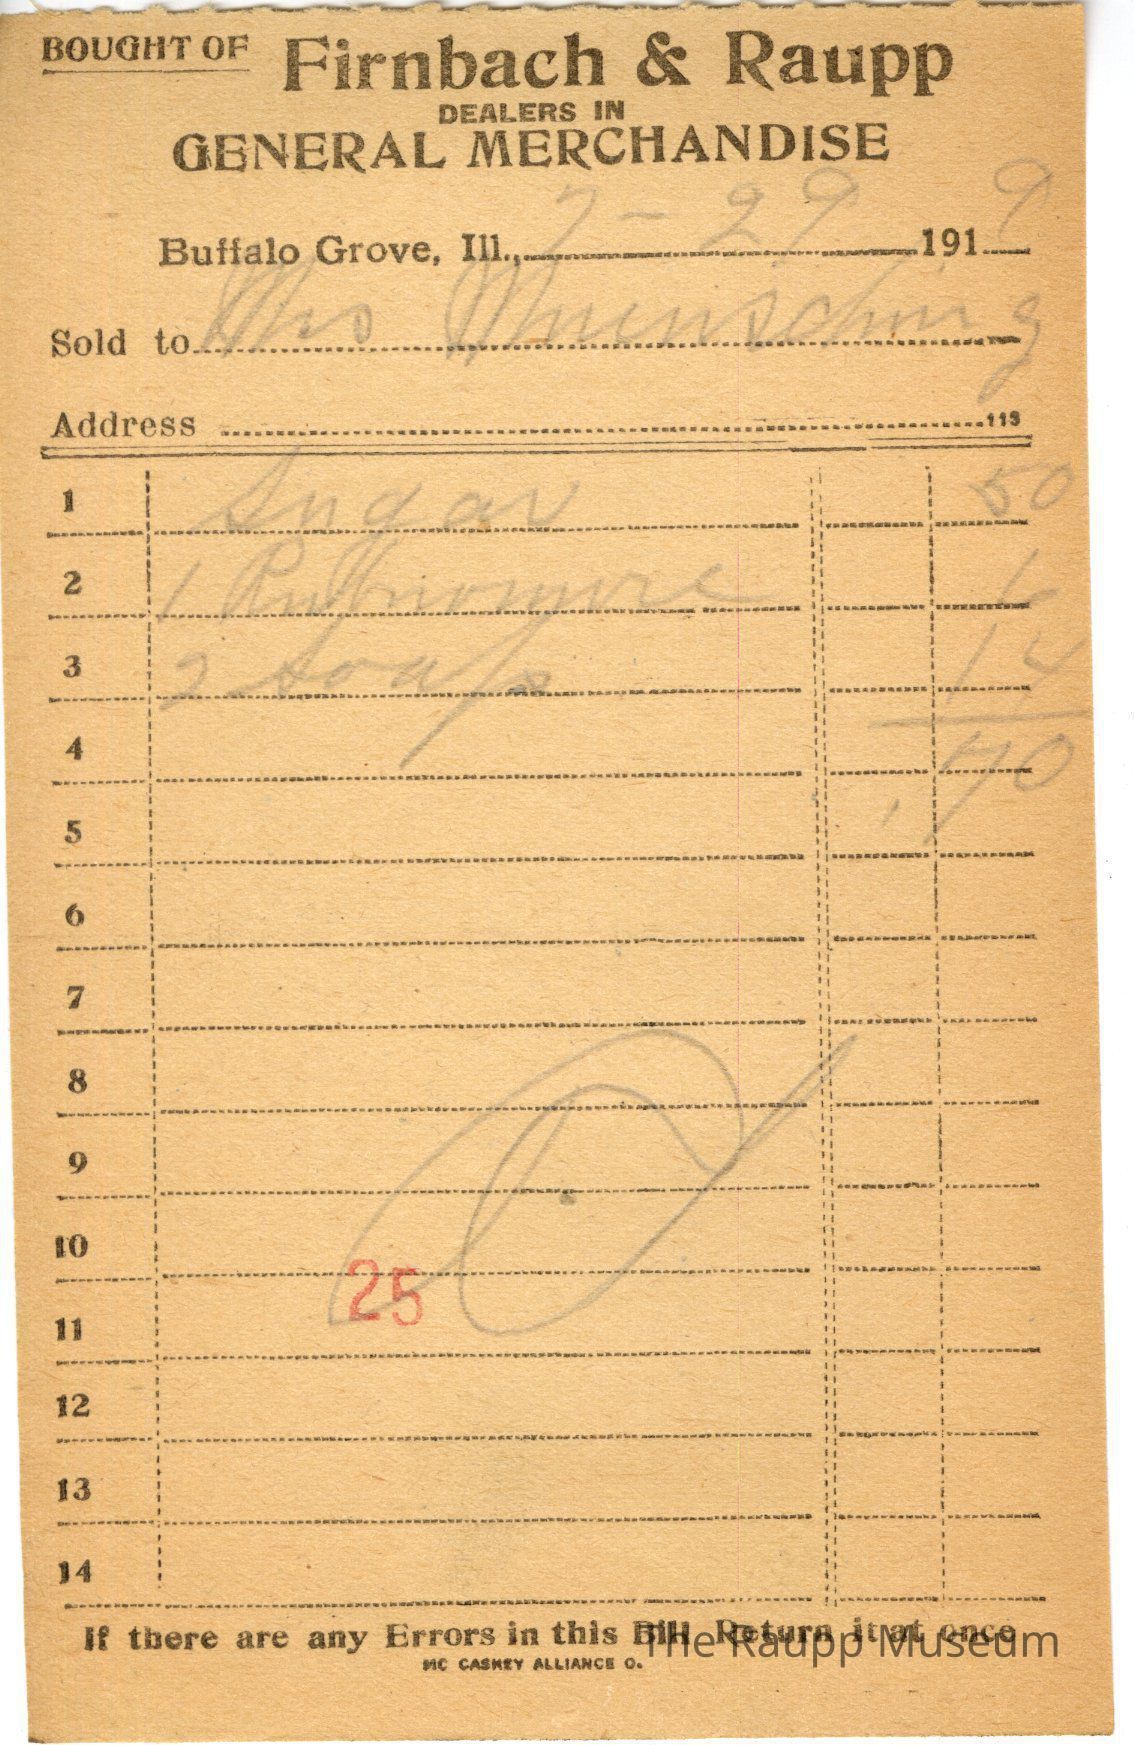 BOUGHT OF Firnbach & Raupp
DEALERS IN
GENERAL MERCHANDISE
Buffalo Grove, Ill., 7-29 1919
Sold to Mrs
Address 113
1 Sugar 50
2 1 6
3 2 Soap 14
4 70
5
6
7
8
9
10
25
11
12
13
14
If there are any Errors in this Bill Return it at once
The Raupp Museum
MC CASKEY ALLIANCE O.